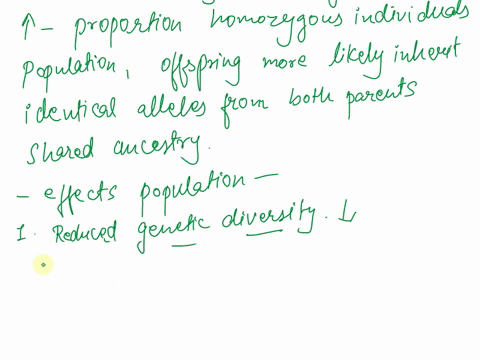 ↑ - proportion homozygous individuals
population, offspring more likely inherit
identical alleles from both parents
shared ancestry.
- effects population -
1. Reduced genetic diversity. ↓